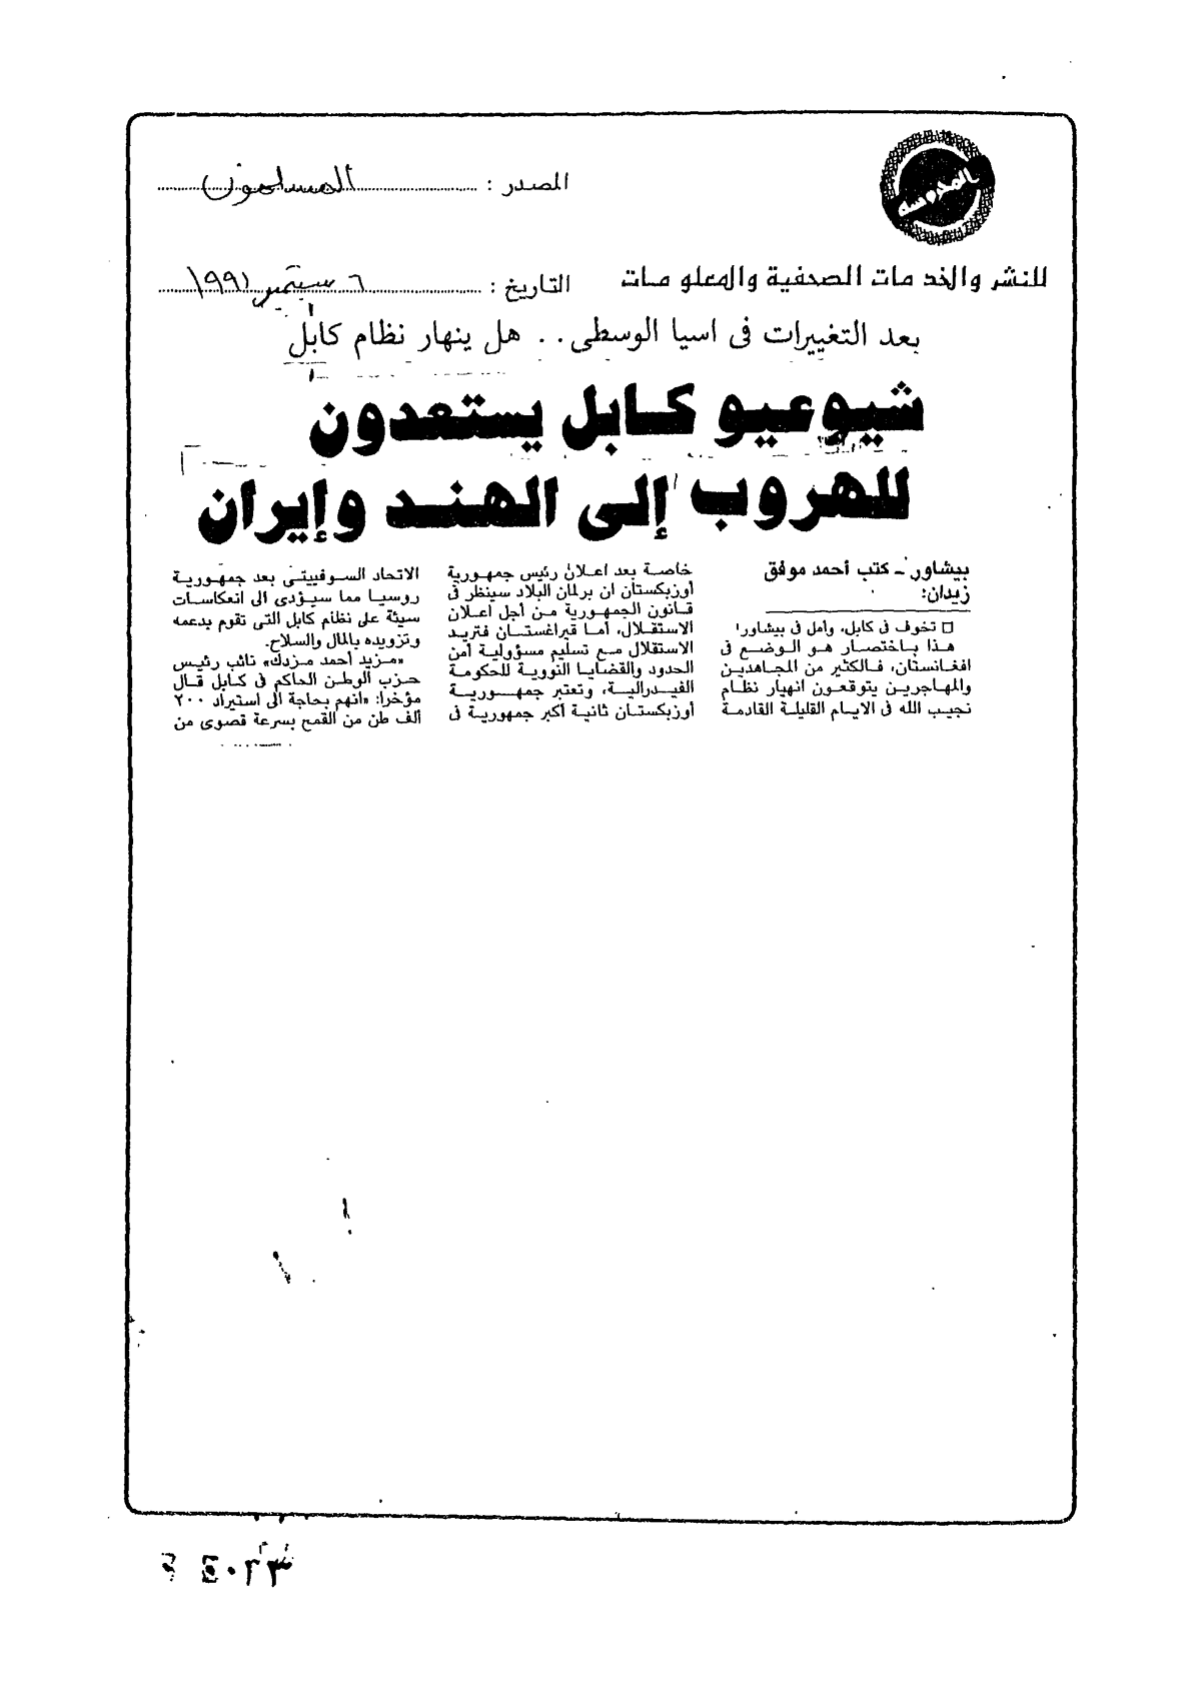 المصدر : المسلمون
للنشر والخدمات الصحفية والمعلومات
التاريخ : ٦ سبتمبر ١٩٩١
بعد التغييرات فى اسيا الوسطى.. هل ينهار نظام كابل
شيوعيو كابل يستعدون
للهروب إلى الهند وإيران
بيشاور ـ كتب أحمد موفق
زيدان:
□ تخوف فى كابل، وأمل فى بيشاور
هذا باختصار هو الوضع فى
افغانستان، فالكثير من المجاهدين
والمهاجرين يتوقعون انهيار نظام
نجيب الله فى الايام القليلة القادمة
خاصة بعد اعلان رئيس جمهورية
أوزبكستان ان برلمان البلاد سينظر فى
قانون الجمهورية من أجل اعلان
الاستقلال، أما قيراغستان فتريد
الاستقلال مع تسليم مسؤولية أمن
الحدود والقضايا النووية للحكومة
الفيدرالية، وتعتبر جمهورية
أوزبكستان ثانية أكبر جمهورية فى
الاتحاد السوفييتى بعد جمهورية
روسيا مما سيؤدى الى انعكاسات
سيئة على نظام كابل التى تقوم بدعمه
وتزويده بالمال والسلاح.
«مزيد أحمد مزدك» نائب رئيس
حزب الوطن الحاكم فى كابل قال
مؤخرا: «انهم بحاجة الى استيراد ٢٠٠
ألف طن من القمح بسرعة قصوى من